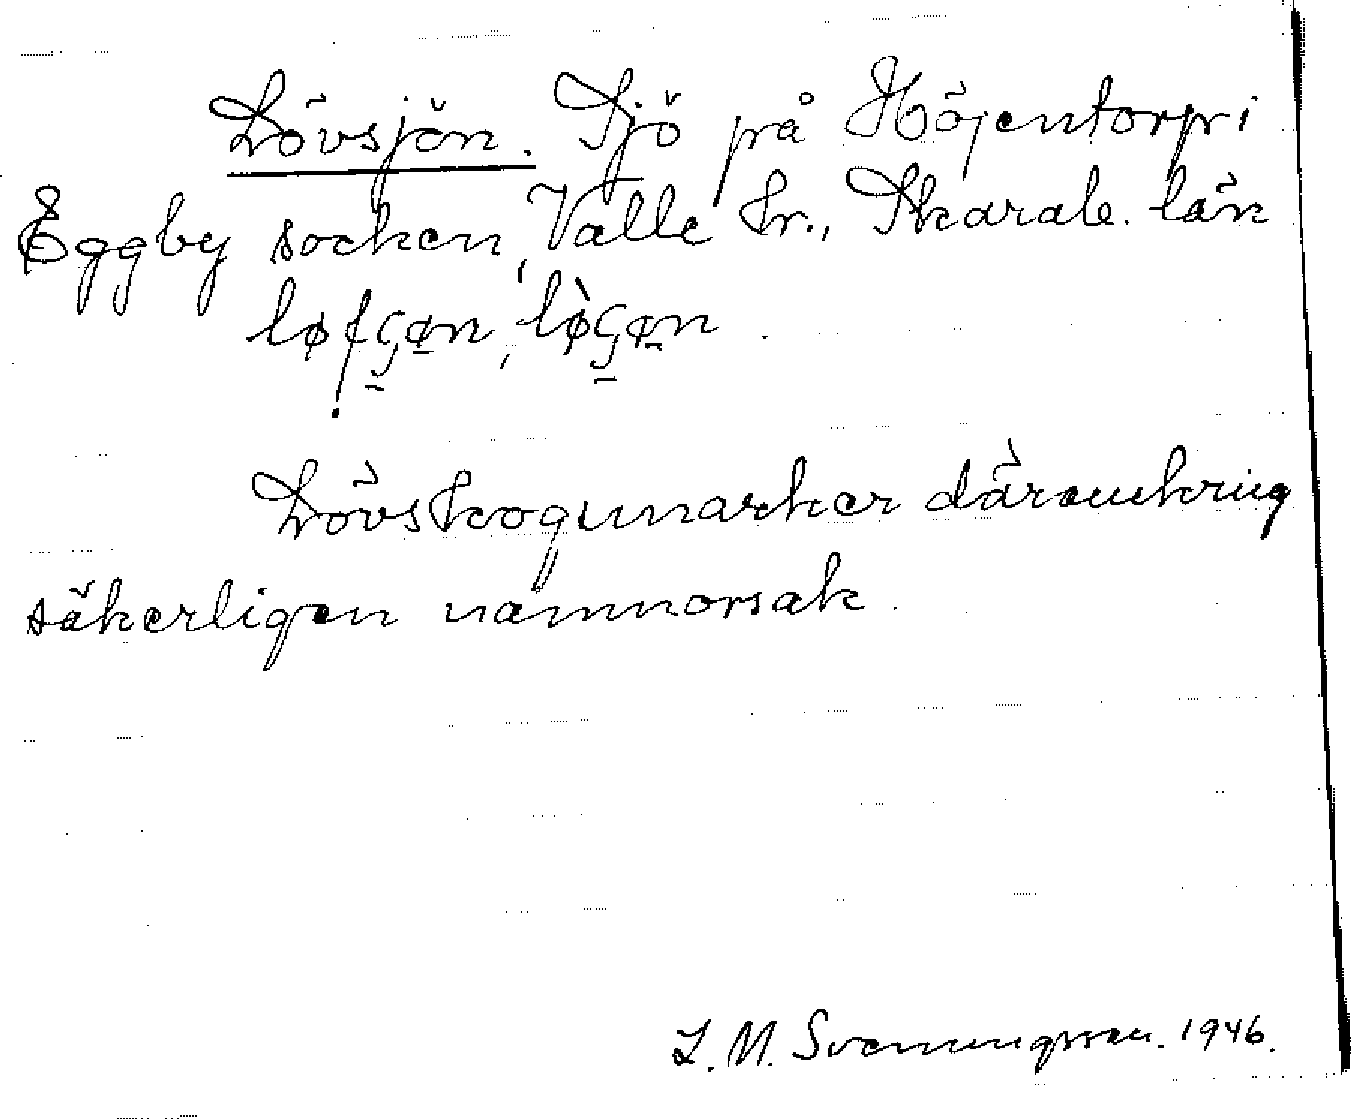 Lövsjön. Sjö på Höjentorp i
Eggby socken, Valle hr., Skarab. län
Lövskogsmarker däromkring
säkerligen namnorsak.
L. M. Svenungsson. 1946.